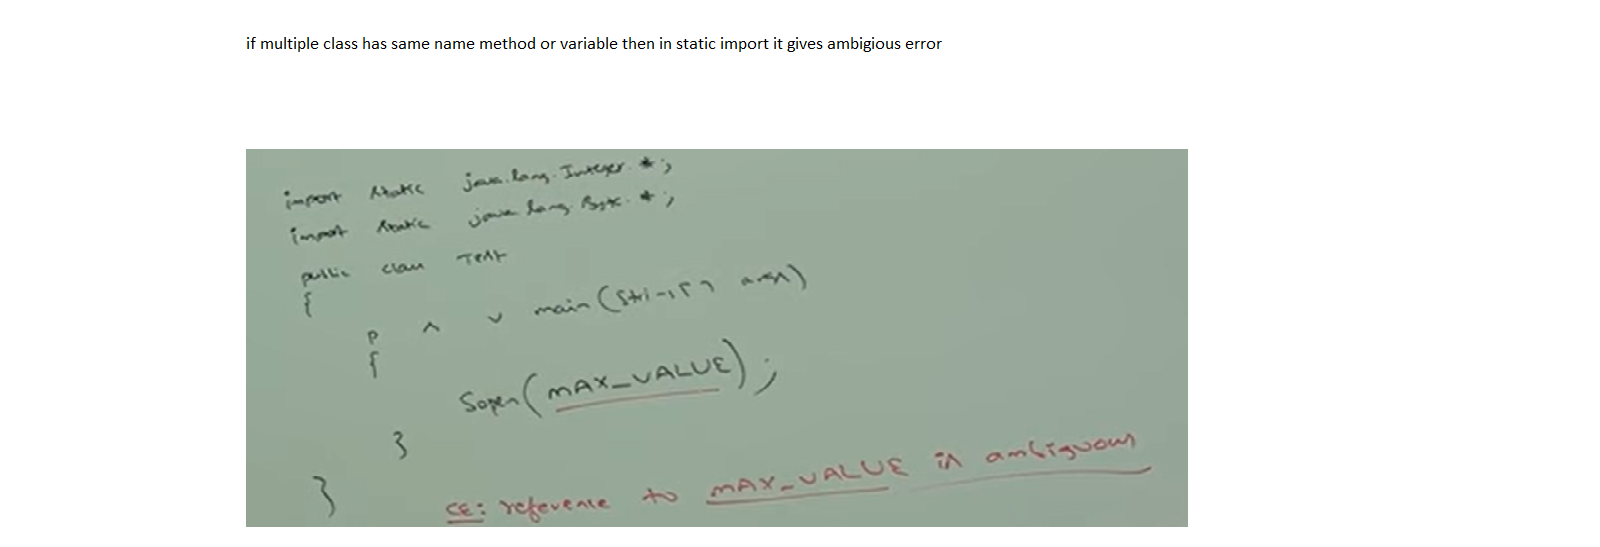 if multiple class has same name method or variable then in static import it gives ambigious error
import static java.lang.Integer.*;
import static java.lang.Byte.*;
public class Test
{
p s v main(String[] args)
{
Sopln(MAX_VALUE);
}
}
CE: reference to MAX_VALUE is ambiguous